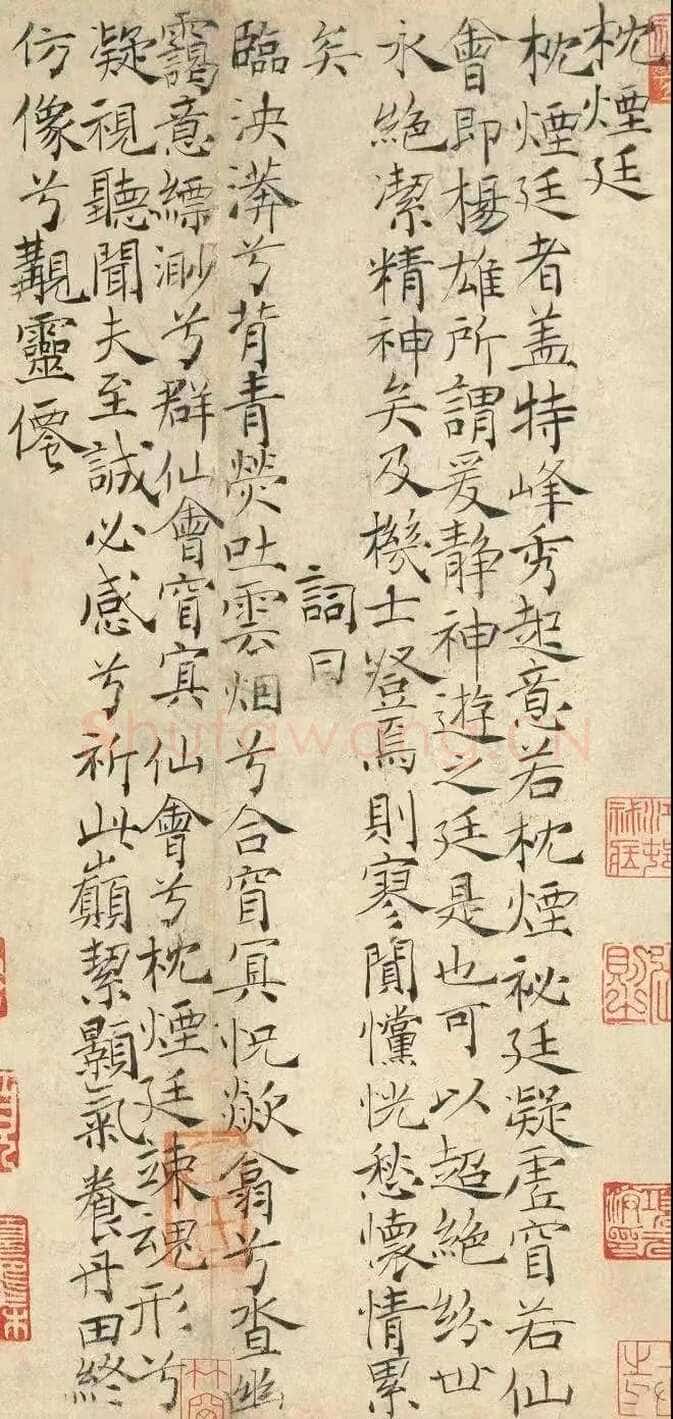 枕煙廷
枕煙廷者盖特峰秀起意若枕煙祕廷凝虛窅若仙
會即楊雄所謂爰静神遊之廷是也可以超絶紛世
永絶潔精神矣及機士登焉則寥闃戃恍愁懷情累
矣
詞曰
臨泱漭兮背青熒吐雲烟兮合窅冥怳欻翕兮沓幽
靄意縹渺兮群仙會窅冥仙會兮枕煙廷竦魂形兮
凝視聽聞夫至誠必感兮祈此巔絜顥氣養丹田終
仿像兮覯靈僊
Shufawang.CN